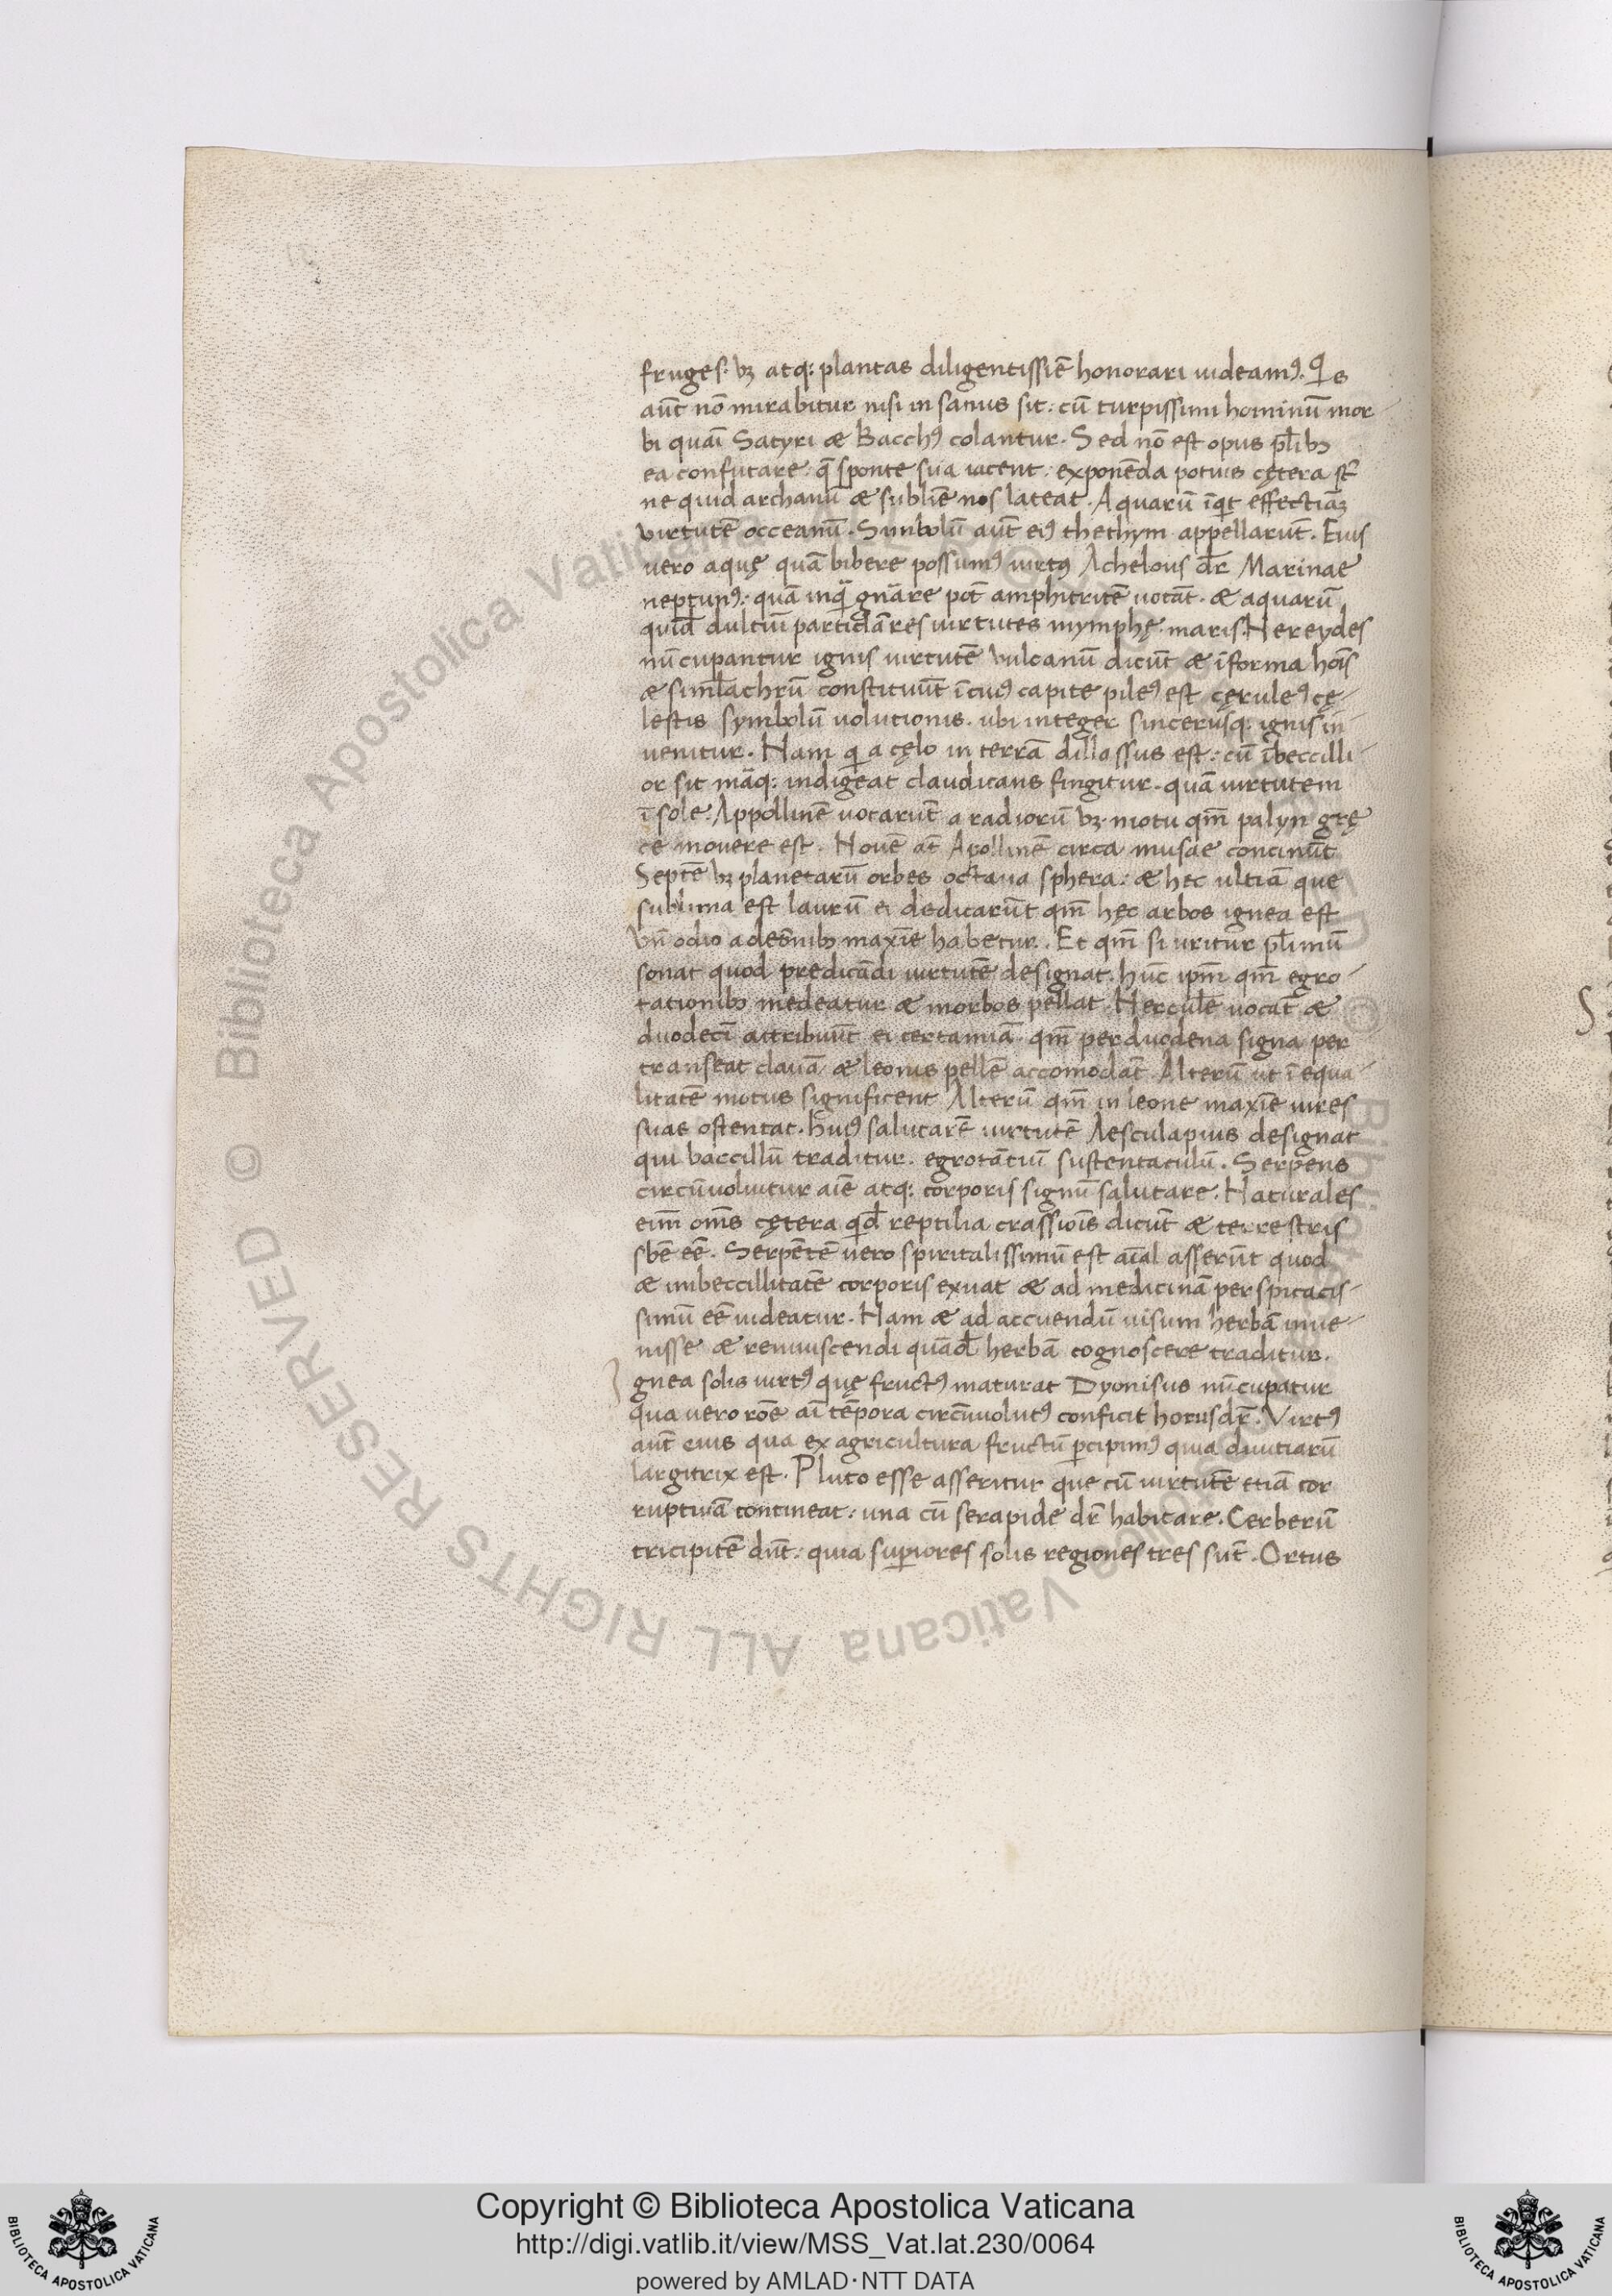 fruges: vꝫ atq: plantas diligentissīe honorari uideamꝰ. Qis
aūt nō mirabitur nisi insanus sit: cū turpissimi hominū mor
bi quāi Satyri & Bacchꝰ colantur. Sed nō est opus pl̄ibꝫ
ea confutare: q̄ sponte sua iacent: exponēda potius cętera st̄
ne quid archanū & sublīe nos lateat. Aquarū īqit effectiāꝫ
virtutē occeanū. Simbolū aūt eiꝰ thethym appellarūt. Eius
uero aquę quā bibere possumꝰ uirtꝰ Achelous dr̄ Marinae
neptunꝰ: quā inq̄ gn̄are pōt amphitritē uocāt. & aquarū
quid̄ dulciū particl̄ares uirtutes nymphę. maris Nereydes
nūcupantur ignis uirtutē Vulcanū dicūt & ī forma hoīs
& siml̄achrū constituūt ī cuiꝰ capite pileꝰ est cęruleꝰ cę-
lestis symbolū uolutionis. ubi integer sincerusq: ignis in-
uenitur. Nam qi a cęlo in terrā dillassus est: cū ībeccilli-
or sit māq: indigeat claudicans fingitur. quā uirtutem
ī sole: Appollinē uocarūt a radiorū vꝫ. motu qm̄ palyn grę
ce mouere est. Nouē āt Apollinē circa musae concinūt
Septē vꝫ planetarū orbes octaua sphera: & hec ultiā que
sublima est laurū ei dedicarūt qm̄ hęc arbos ignea est
Vn̄ odio a deōnibꝫ maxīe habetur. Et qm̄ si uritur pl̄imū
sonat quod predicādi uirtutē designat. hūc ipm̄ qm̄ egro-
tationibꝫ medeatur & morbos pellat. Hercul̄e uocāt &
duodecī attribuūt ei certamiā qm̄ per duodena signa per
transeat clauā & leonis pellē accomodāt Alterū ut ī equa-
litatē motus significent Alterū qm̄ in leone maxīe uires
suas ostentat. huiꝰ salutarē uirtutē Aesculapius designat
qui baccillū traditur. egrotātiū sustentaculū. Serpens
circūuoluitur aīe atq: corporis signū salutare. Naturales
eīm om̄s cętera qd̄ reptilia crassioīs dicūt & terrestris
sb̄e eē. Serpētē uero spiritalissimū est aīal asserūt quod
& imbeccillitatē corporis exuat & ad medicinā perspicacis-
simū eē uideatur. Nam & ad accuendū uisum herbā inue-
nisse & reniuiscendi quād̄ herbā cognoscere traditur.
Ignea solis uirtꝰ quę fructꝰ maturat Dyonisus nūcupatur
qua uero rōe aī tēpora circūuolutꝰ conficit horus dr̄. Virtꝰ
aūt eius qua ex agricultura fructū ꝑcipimꝰ quia diuitiarū
largitrix est. Pluto esse asseritur que cū uirtutē etiā cor
ruptiuā contineat: una cū serapide dr̄ habitare. Cerberū
tricipitē dn̄t: quia suꝑiores solis regiones tres sūt. Ortus
Copyright © Biblioteca Apostolica Vaticana
http://digi.vatlib.it/view/MSS_Vat.lat.230/0064
powered by AMLAD·NTT DATA